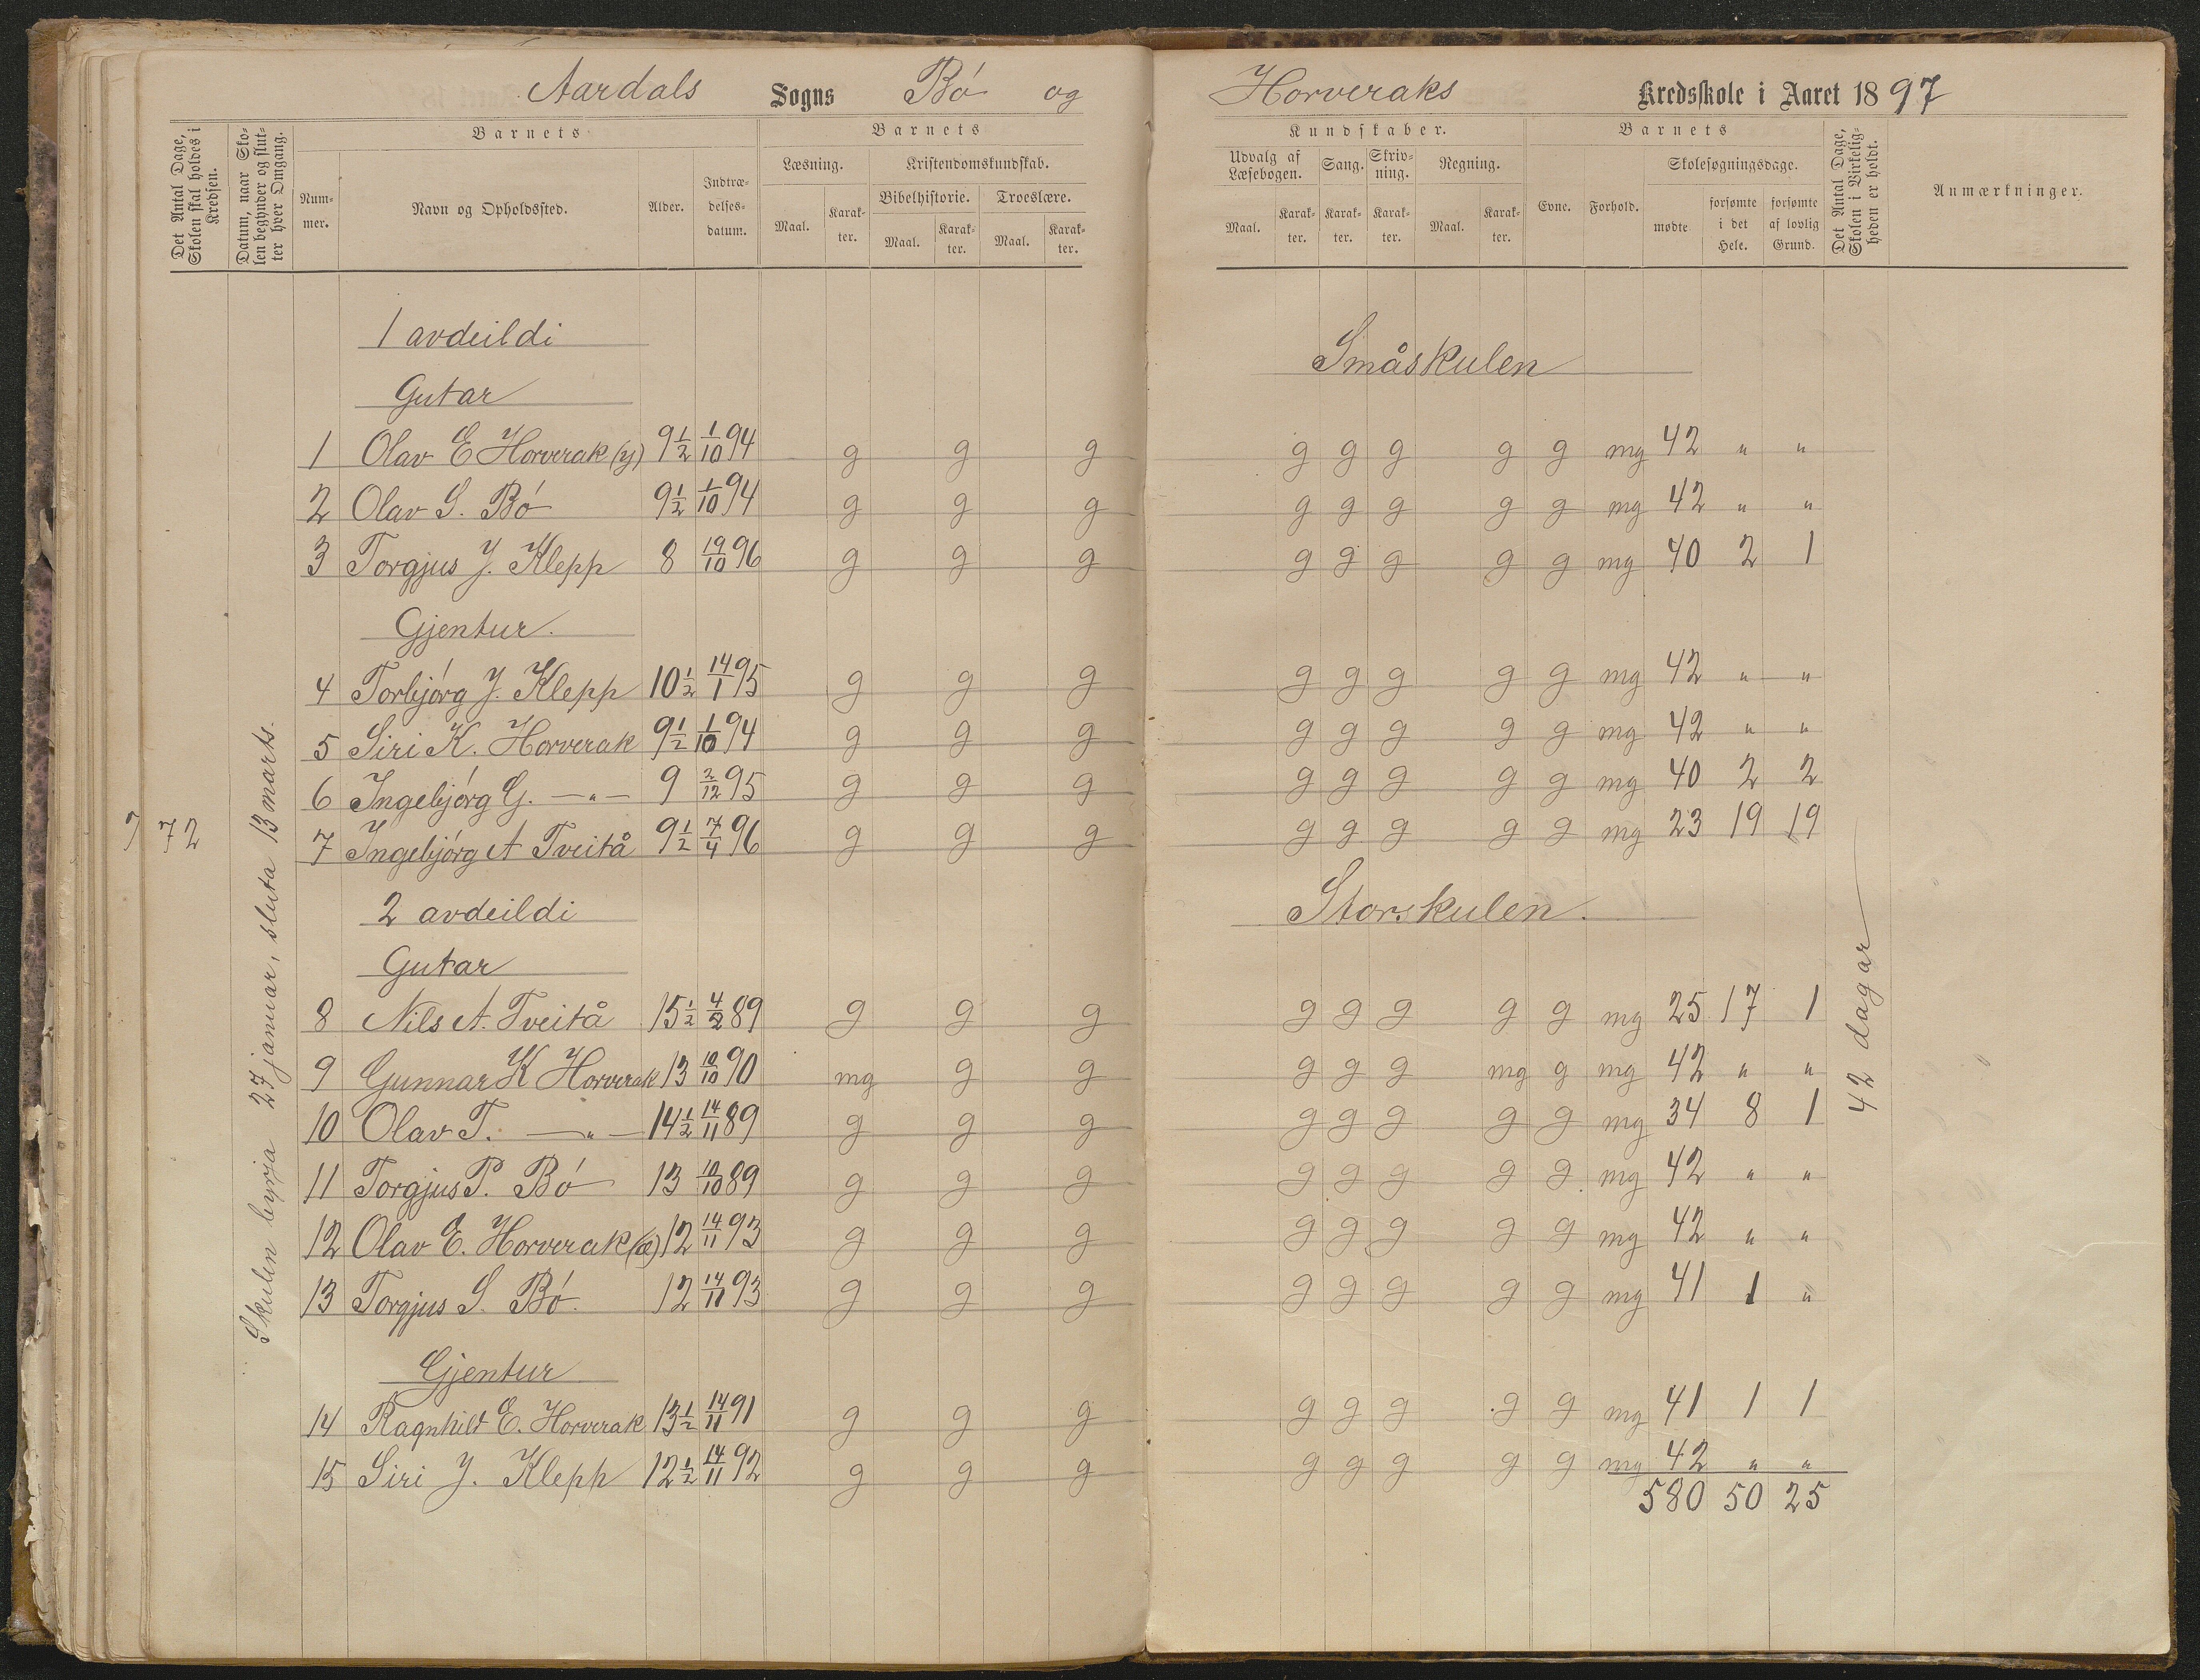 Aardals Sogns Bó og Horveraks Kredsskole i Aaret 1897
Det Antal Dage, Skolen skal holdes i Kredsen.
Datum, naar Skolen begynder og slutter hver Omgang.
Barnets
Nummer.
Navn og Opholdssted.
Alder.
Indtrædelsesdatum.
Barnets
Læsning.
Maal.
Karakter.
Kristendomskundskab.
Bibelhistorie.
Maal.
Karakter.
Troeslære.
Maal.
Karakter.
Kundskaber.
Udvalg af Læsebogen.
Maal.
Karakter.
Sang.
Karakter.
Skrivning.
Karakter.
Regning.
Maal.
Karakter.
Barnets
Evne.
Forhold.
Skolesøgningsdage.
mødte
forsømte i det Hele.
forsømte af lovlig Grund.
Det Antal Dage, Skolen i Virkeligheden er holdt.
Anmærkninger.
72
Skulen byrja 27 januar, sluta 13 marts.
1 avdeildi
Småskulen
Gutar
1 Olav E Horverak (y) 9 1/2 1/10 94 g g g g g g g g mg 42 " "
2 Olav S. Bó 9 1/2 1/10 94 g g g g g g g g mg 42 " "
3 Torgjus J. Klepp 8 19/10 96 g g g g g g g g mg 40 2 1
Gjentur.
4 Torbjórg J. Klepp 10 1/2 14/1 95 g g g g g g g g mg 42 " "
5 Siri K. Horverak 9 1/2 1/10 94 g g g g g g g g mg 42 " "
6 Ingebjórg G. —"— 9 2/12 95 g g g g g g g g mg 40 2 2
7 Ingebjórg A Tveitå 9 1/2 7/4 96 g g g g g g g g mg 23 19 19
2 avdeildi
Storskulen.
Gutar
8 Nils A. Tveitå 15 1/2 4/2 89 g g g g g g g g mg 25 17 1
9 Gunnar K Horverak 13 10/10 90 mg g g g g g mg g mg 42 " "
10 Olav T. —"— 14 1/2 14/11 89 g g g g g g g g mg 34 8 1
11 Torgjus P. Bó 13 10/10 89 g g g g g g g g mg 42 " "
12 Olav E. Horverak (æ) 12 14/11 93 g g g g g g g g mg 42 " "
13 Torgjus S. Bó. 12 14/11 93 g g g g g g g g mg 41 1 "
Gjentur
14 Ragnhild E. Horverak 13 1/2 14/11 91 g g g g g g g g mg 41 1 1
15 Siri J. Klepp 12 1/2 14/11 92 g g g g g g g g mg 42 " "
580 50 25
42 dagar